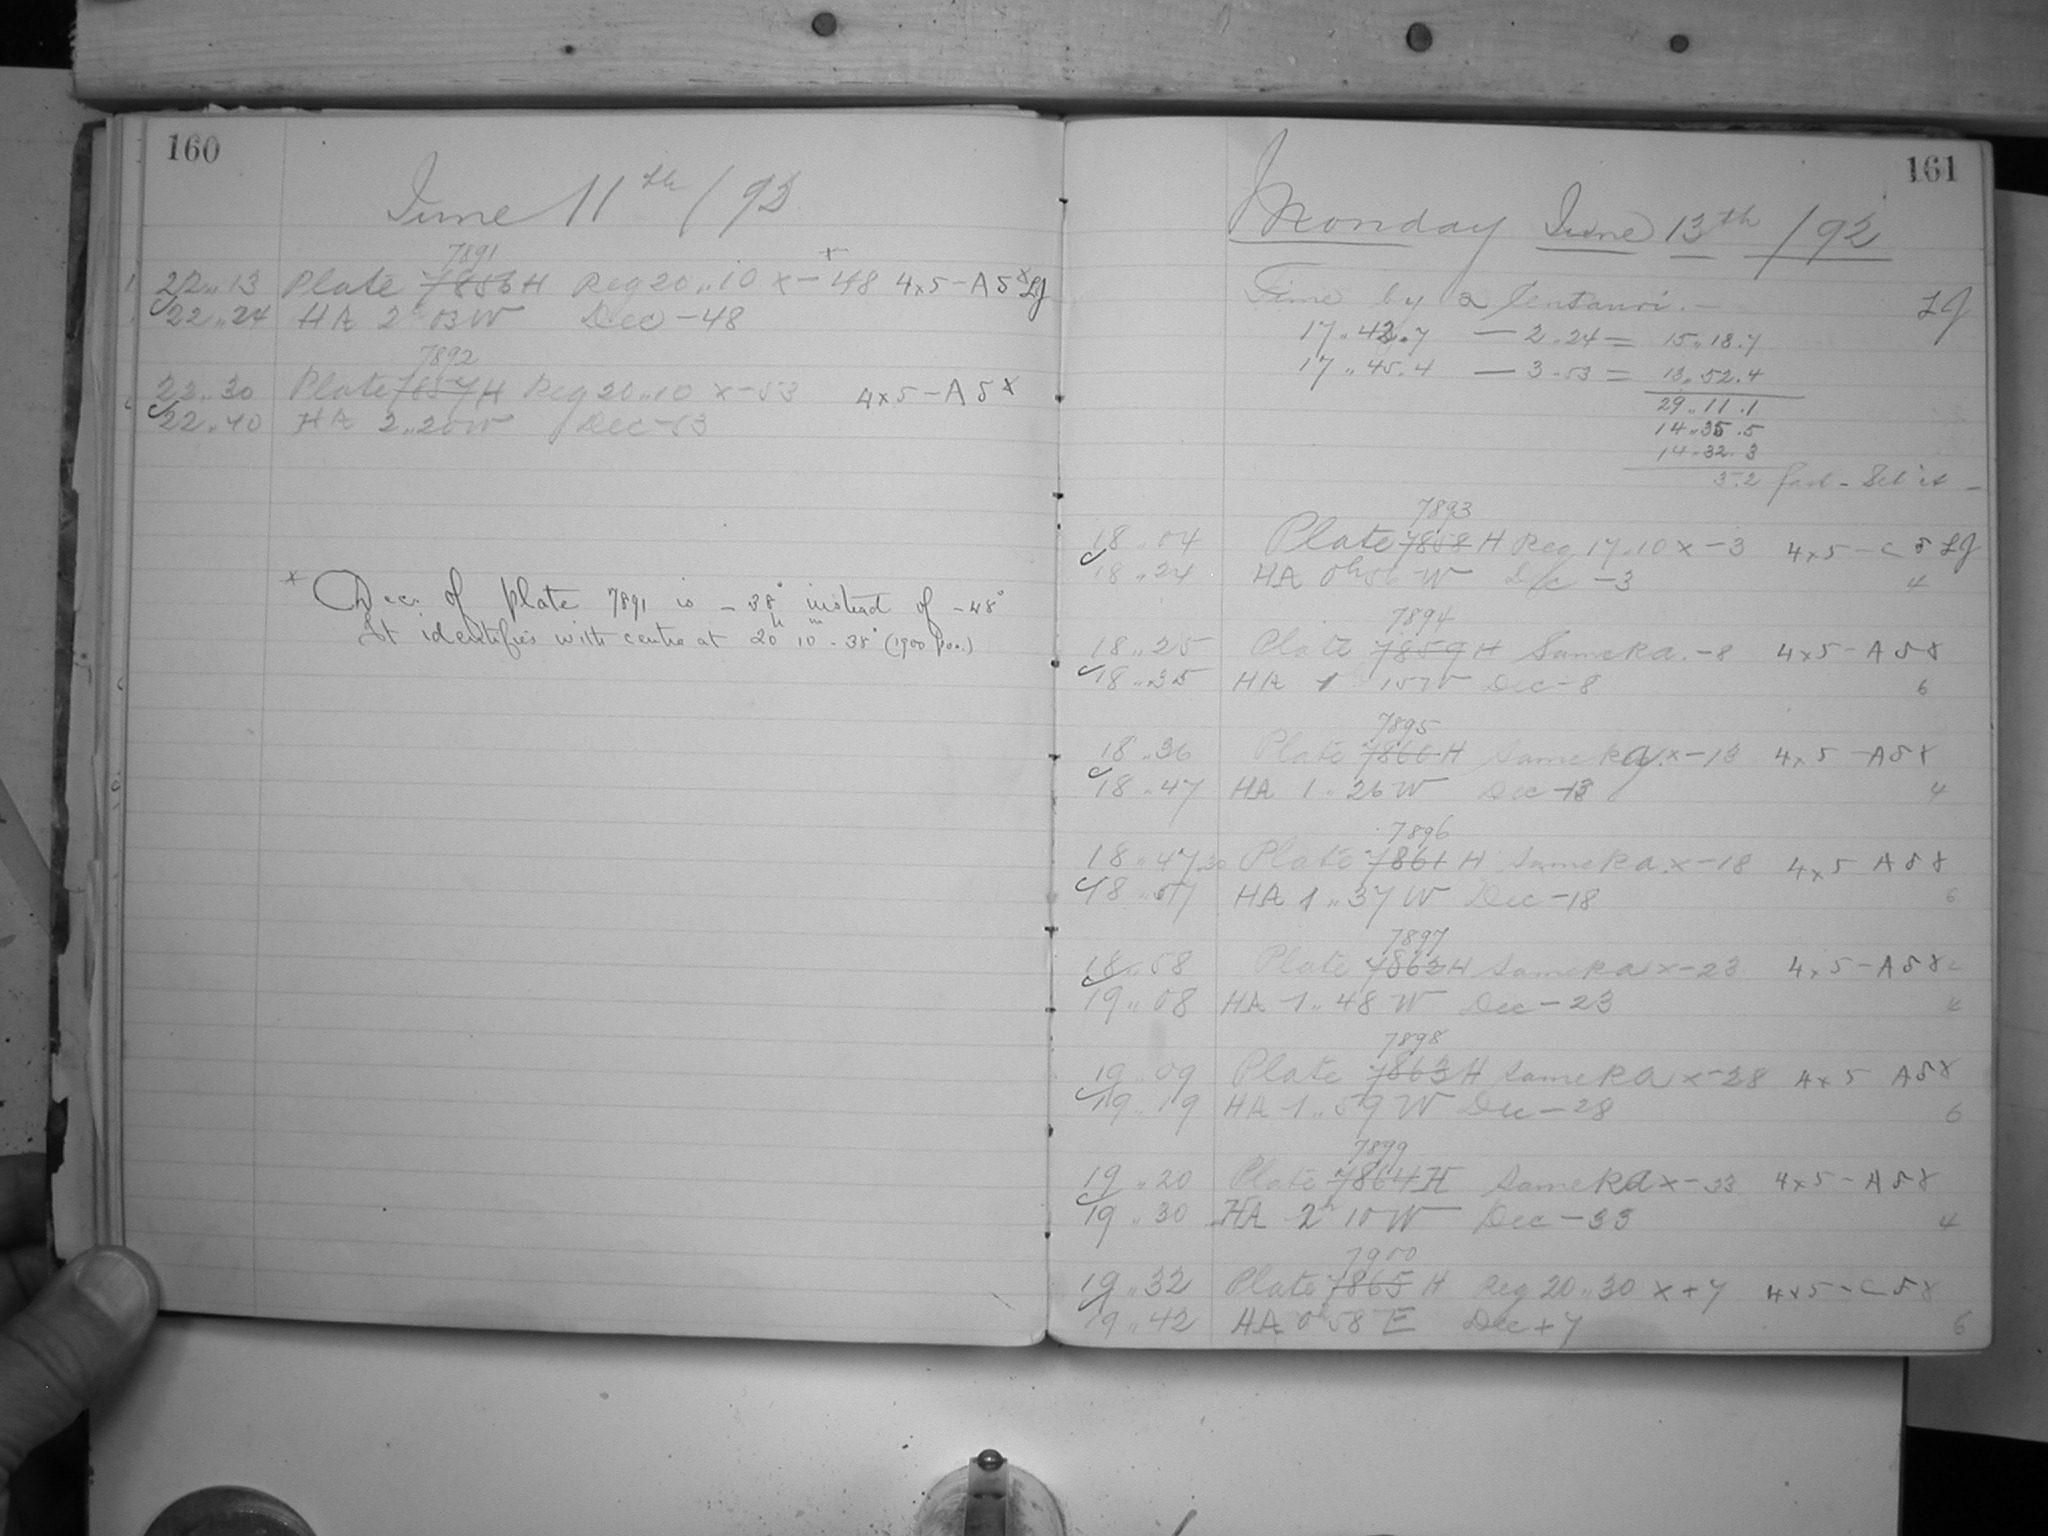 160
June 11th / 92
7891
22..13 Plate 7856 H Reg 20..10 x -48 4x5-A 5 x LJ
22..24 HA 2h 03 W Dec -48
7892
22..30 Plate 7857 H Reg 20..10 x -53 4x5-A 5 x
22..40 HA 2..20 W Dec -53
x Dec. of plate 7891 is -38° instead of -48°
It identifies with centre at 20h 10m -38° (1900 )
161
Monday June 13th / 92
Time by a Centauri. - LJ
17..42.7 - 2.24 = 15..18.7
17..45.4 - 3.53 = 13..52.4
29..11.1
14..35.5
14.32.3
3.2 fast - Set it -
7893
18..04 Plate 7858 H Reg 17..10 x -3 4x5-C 5 LJ
18..24 HA 0h 56 W Dec -3 4
7894
18..25 Plate 7859 H Same R a. -8 4x5-A 5 8
18..35 HA 1 15 W Dec -8 6
7895
18..36 Plate 7860 H Same R a. x -13 4x5-A 5 8
18..47 HA 1..26 W Dec -13 4
7896
18..47.30 Plate 7861 H Same R a. x -18 4x5 A 5 8
18..57 HA 1..37 W Dec -18 6
7897
18..58 Plate 7862 H Same R a x -23 4x5-A 5 8
19..08 HA 1..48 W Dec -23 4
7898
19..09 Plate 7863 H Same R a x -28 4x5 A 5 8
19..19 HA 1..59 W Dec -28 6
7899
19..20 Plate 7864 H Same R a x -33 4x5-A 5 8
19..30 HA 2h 10 W Dec -33 4
7900
19..32 Plate 7865 H Reg 20..30 x +7 4x5-C 5 8
19..42 HA 0h 58 E Dec +7 6